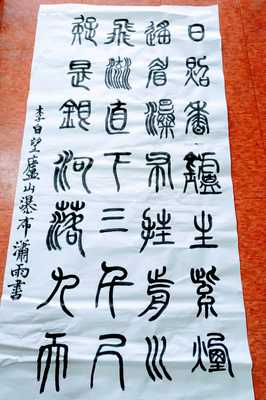 日照香鑪生紫煙
遙看瀑布挂前川
飛流直下三千尺
疑是銀河落九天
李白望廬山瀑布 瀟雨書